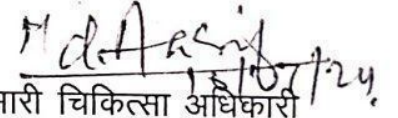 Md. Aasif
18/07/24.
मारी चिकित्सा अधिकारी